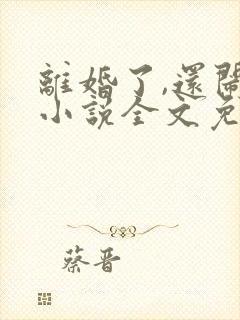 離婚了,還鬧
小說全文免
蔡晋